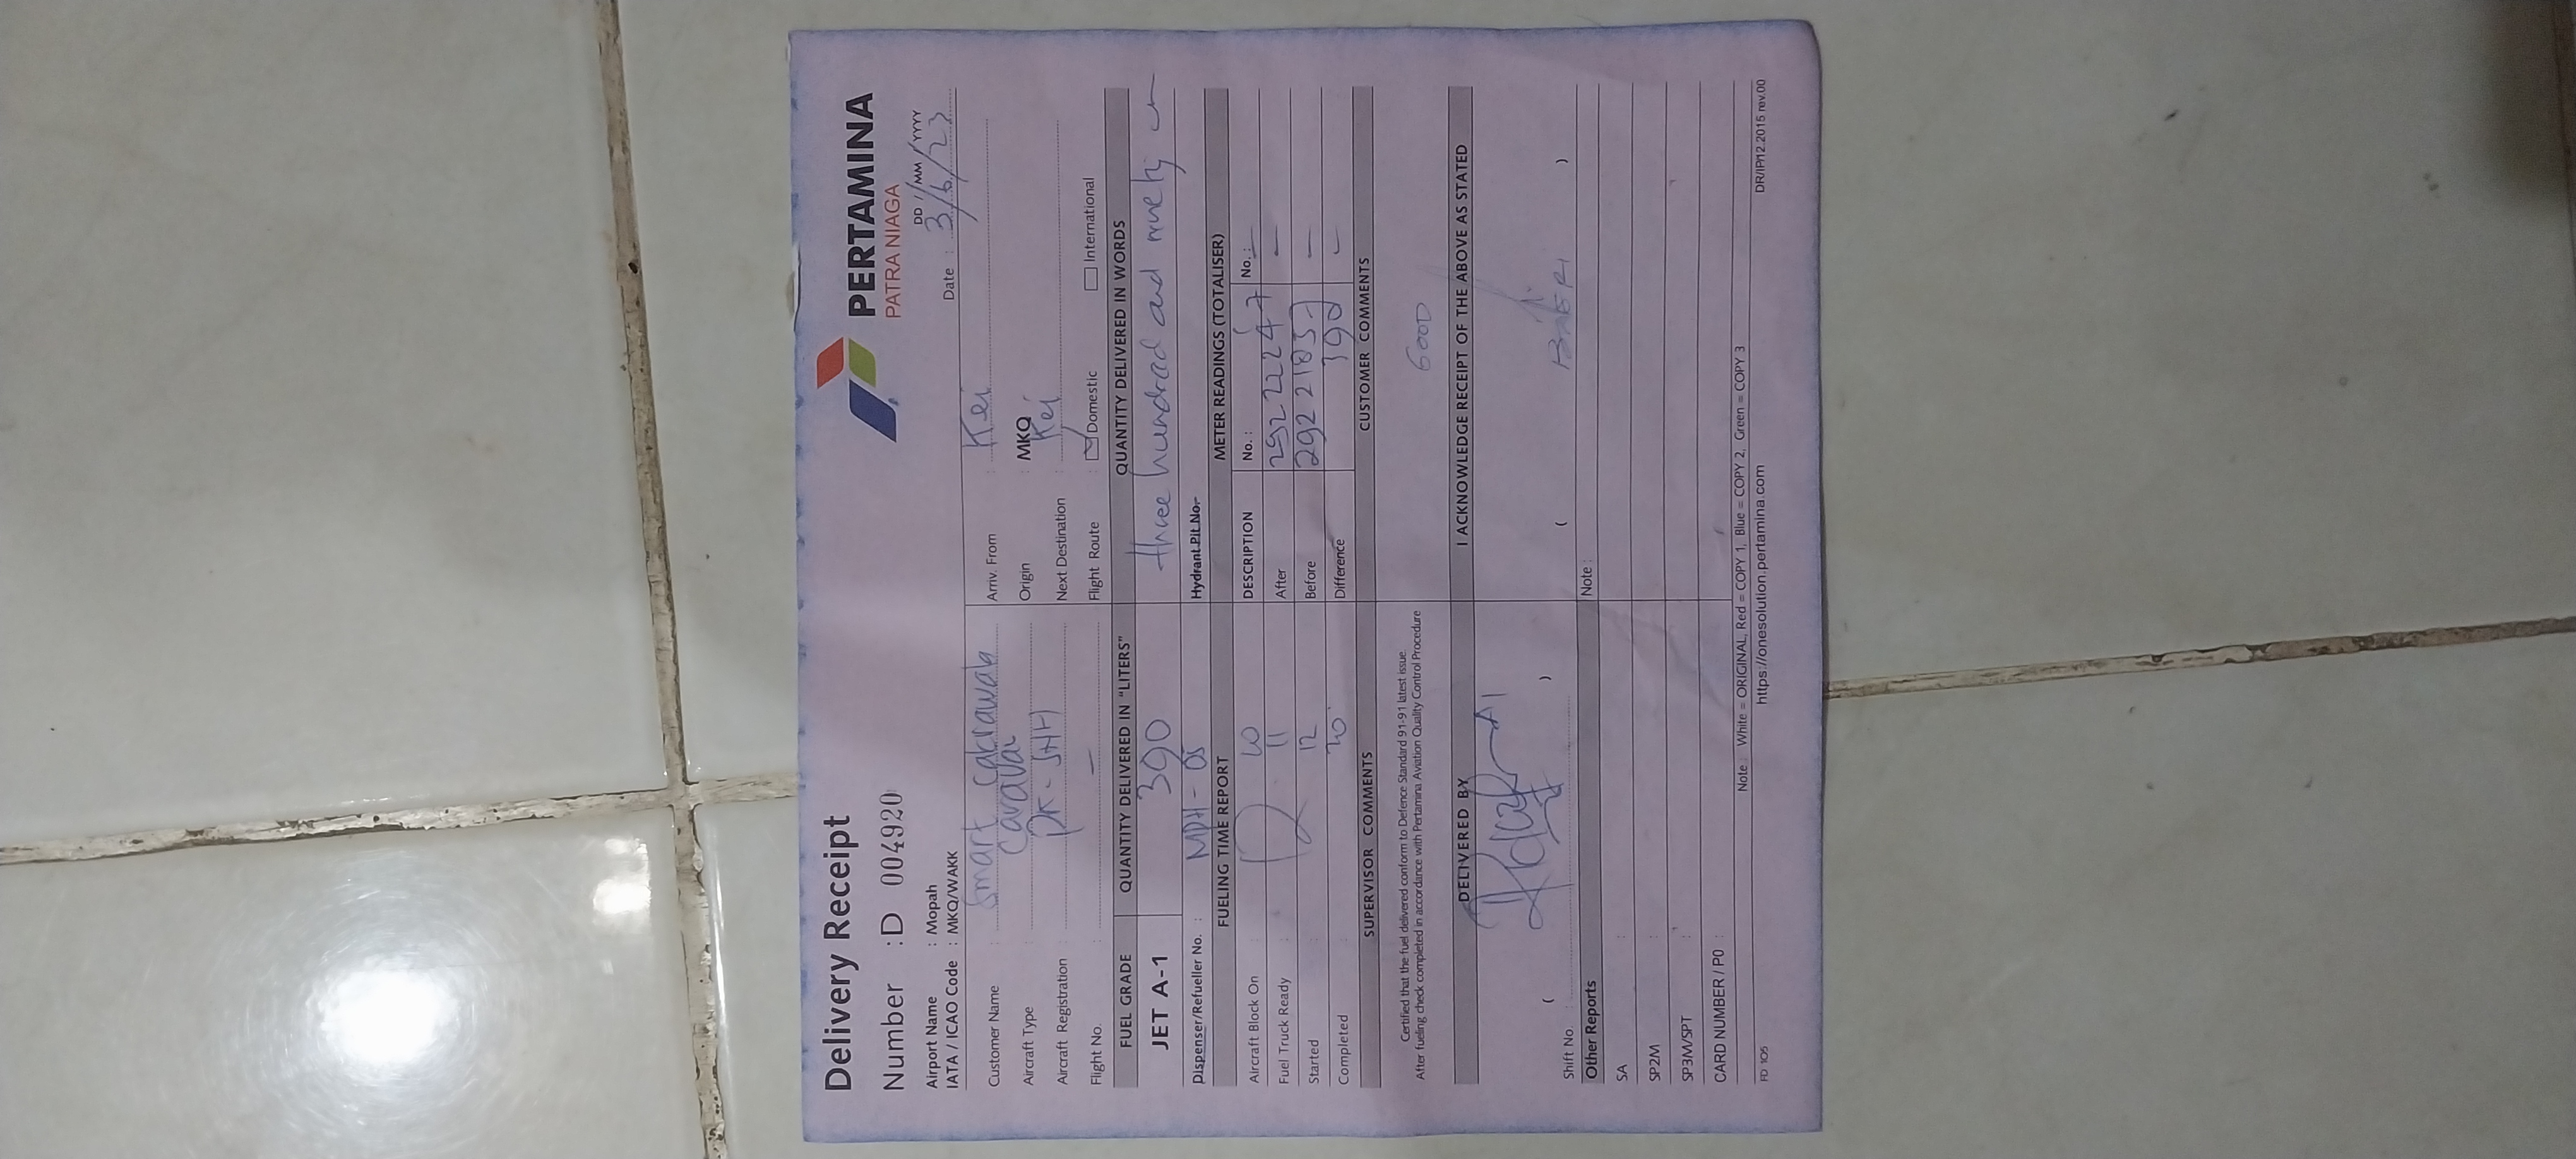 Delivery Receipt
PERTAMINA
PATRA NIAGA
Number : D 004920
DD / MM / YYYY
Airport Name : Mopah
Date : 3/6/23
IATA / ICAO Code : MKQ/WAKK
Customer Name : Smart Cakrawala
Arriv. From : Kei
Aircraft Type : Caravan
Origin : MKQ
Aircraft Registration : PK-
Next Destination : Kei
Flight No. : —
Flight Route : Domestic International
FUEL GRADE QUANTITY DELIVERED IN "LITERS" QUANTITY DELIVERED IN WORDS
JET A-1 390 three hundred and ninety
Dispenser/Refueller No. : MDH - 05
Hydrant Pit No.
FUELING TIME REPORT METER READINGS (TOTALISER)
Aircraft Block On : 10
DESCRIPTION No. : No. : —
Fuel Truck Ready : 11
After 2922247 —
Started : 12
Before 2921857 —
Completed : 20
Difference 390 —
SUPERVISOR COMMENTS CUSTOMER COMMENTS
GOOD
Certified that the fuel delivered conform to Defence Standard 91-91 latest issue.
After fueling check completed in accordance with Pertamina Aviation Quality Control Procedure
DELIVERED BY I ACKNOWLEDGE RECEIPT OF THE ABOVE AS STATED
( ) ( )
Shift No :
Other Reports Note :
SA :
SP2M :
SP3M/SPT :
CARD NUMBER / PO :
Note : White = ORIGINAL, Red = COPY 1, Blue = COPY 2, Green = COPY 3
FD 105 https://onesolution.pertamina.com DR/IP/12.2015 rev.00